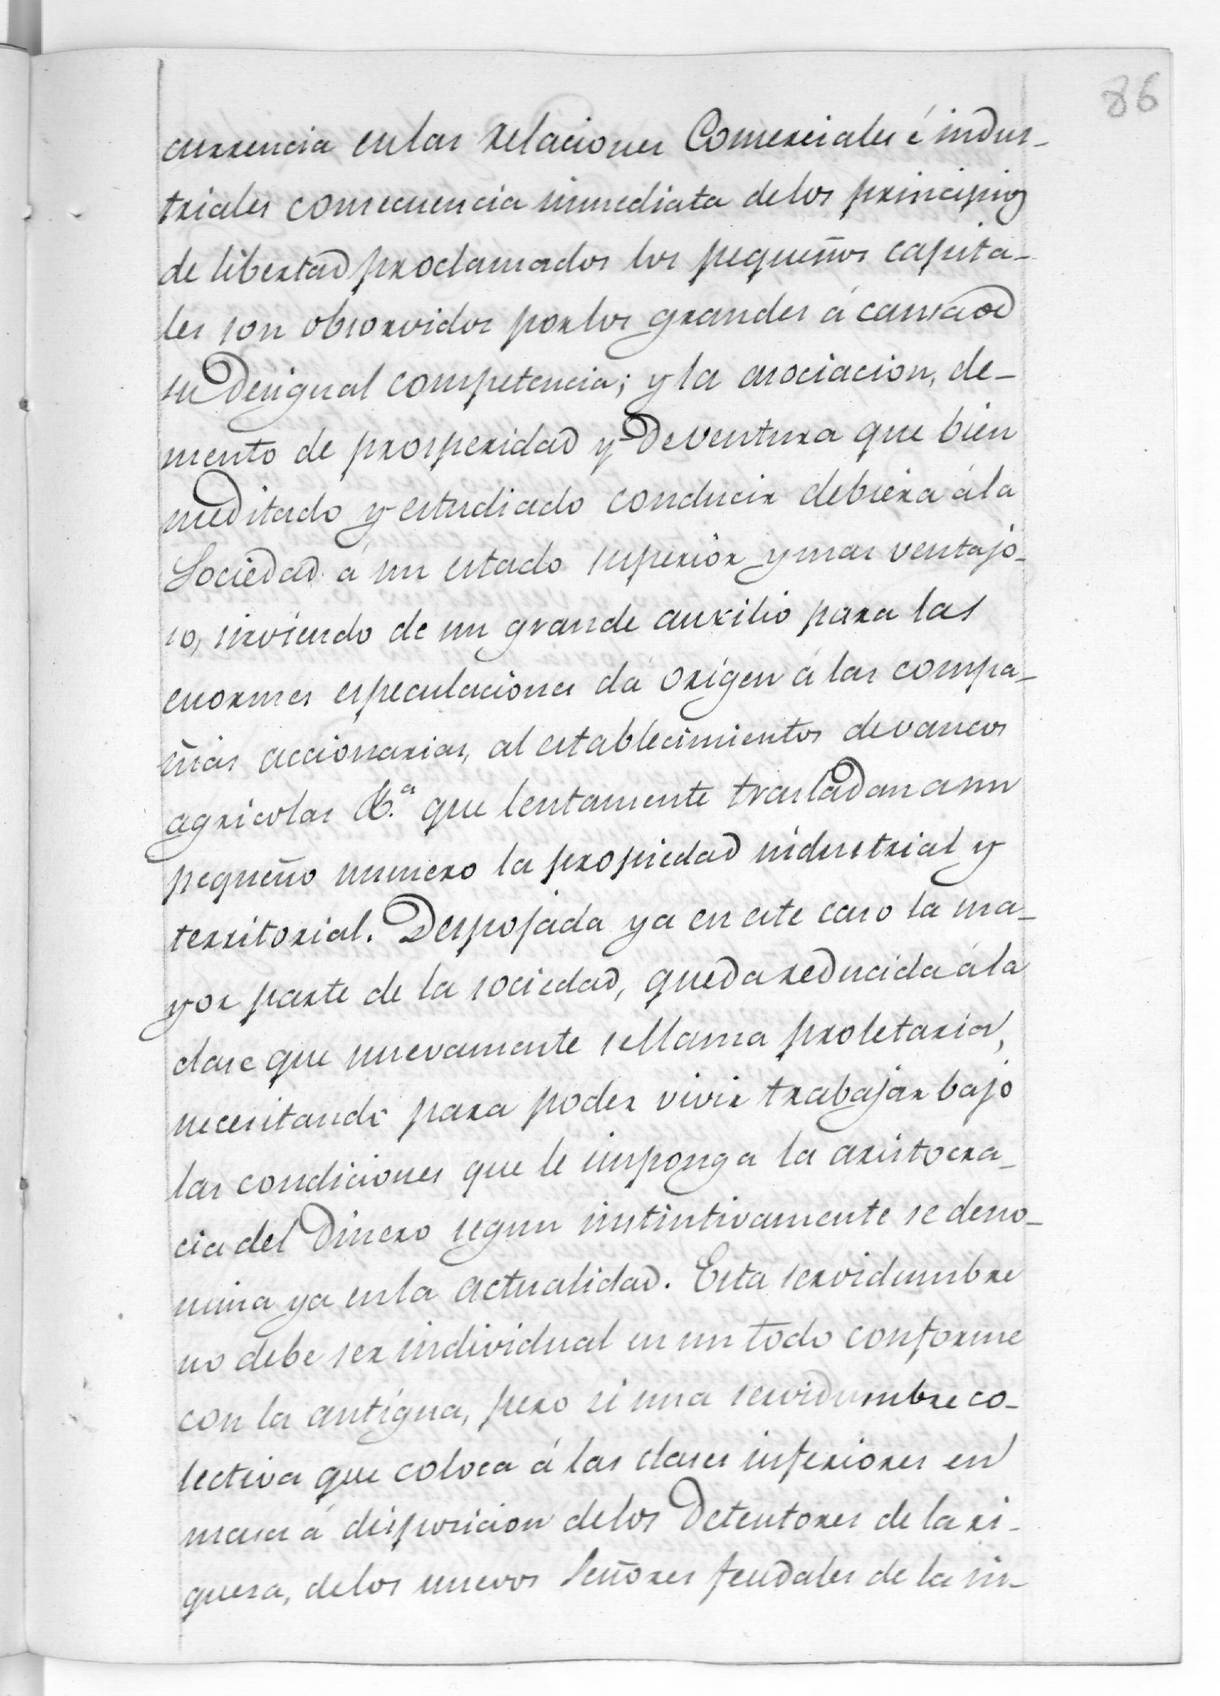 86
currencia en las relaciones Comerciales é indus-
triales consecuencia inmediata de los principios
de libertad proclamados los pequeños capita-
les son obsorvidos por los grandes á causa de
su desigual competencia; y la asociacion, ele-
mento de prosperidad y de ventura que bien
meditado y estudiado conducir debiera á la
Sociedad á un estado superior y mas ventajo-
so, sirviendo de un grande auxilio para las
enormes especulaciones da origen á las compa-
ñias accionarias, al establecimientos de vancos
agricolas &.ª que lentamente trasladan a un
pequeño numero la propiedad industrial y
territorial. Despojada ya en este caso la ma-
yor parte de la sociedad, queda reducida á la
clase que nuevamente se llama proletaria,
necesitando para poder vivir trabajar bajo
las condiciones que le imponga la aristocra-
cia del Dinero segun instintivamente se deno-
mina ya en la actualidad. Esta servidumbre
no debe ser individual en un todo conforme
con la antigua, pero si una servidumbre co-
lectiva que coloca á las clases inferiores en
masa á disposicion de los Detentores de la ri-
quesa, de los nuevos Señores feudales de la in-